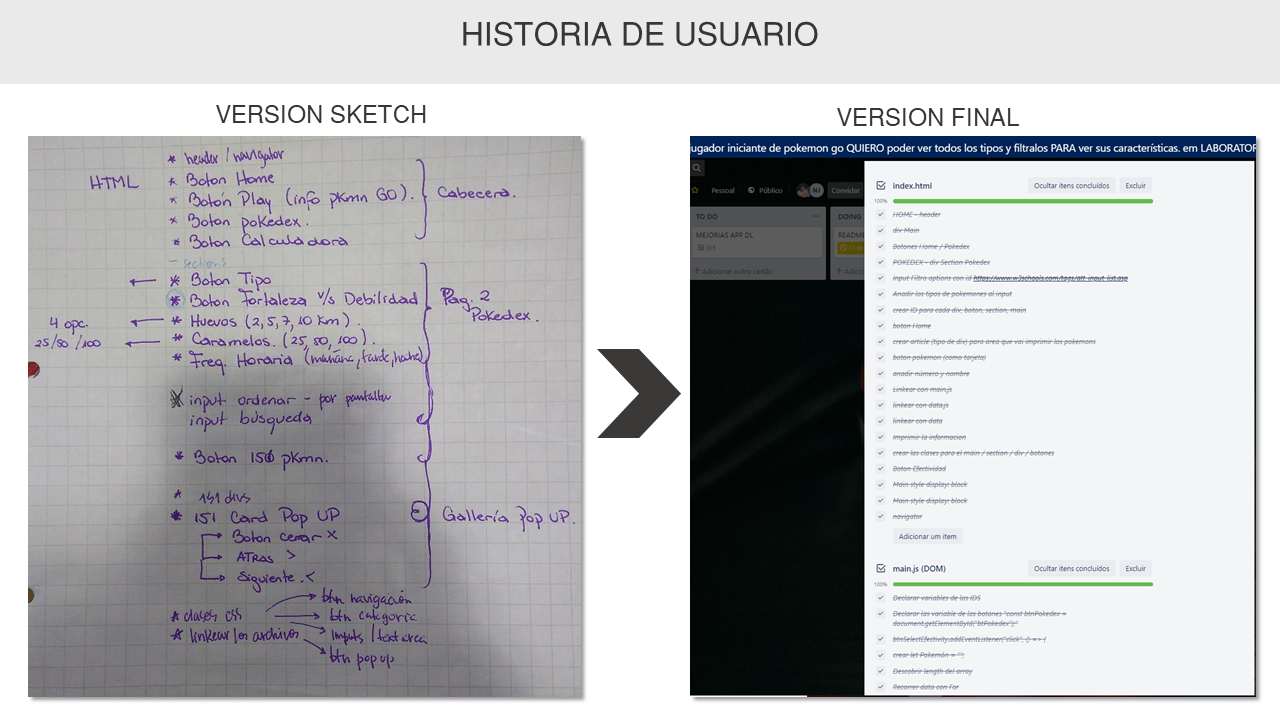 HISTORIA DE USUARIO
VERSION SKETCH
* header / navigator
HTML
* Boton Home
* Botón Play (info pkmn GO).
Cabecera.
* Boton pokedex.
* Boton Calculadora
- sections
* Boton Tipo
* Boton Fortaleza V/s Debilidad
Pag. 2
Pokedex.
* Huevos (2,5,7,10 Km).
4 opc.
* Caramelos. (25, 50, 100).
25/50/100
* Freq. Horaria (mañana, tarde, noche)
input ordenar - por pantalla
input búsqueda
* Boton 150 pkmn.
* 151 divs
* 151 Card Pop UP
Gallería Pop UP.
Boton cerrar X
ATRAS >
Siguiente. <
* clases css
btn navigación
btn categoria
* linkear los archivos
inputs / textarea
btn pop up
VERSION FINAL
ugador iniciante de pokemon go QUIERO poder ver todos los tipos y filtralos PARA ver sus características. em LABORATOR
Pessoal
Público
NJ
Convidar
TO DO
DOING
MEJORIAS APP DL
0/3
README
+ Adicionar outro cartão
+ Adicio
index.html
Ocultar itens concluídos
Excluir
100%
HOME - header
div Main
Botones Home / Pokedex
POKEDEX - div Section Pokedex
Input Filtro options con id https://www.w3schools.com/tags/att_input_list.asp
Anadir los tipos de pokemones al input
crear ID para cada div, boton, section, main
boton Home
crear article (tipo de div) para area que vai imprimir los pokemons
boton pokemon (como tarjeta)
anadir número y nombre
Linkear con main.js
linkear con data.js
linkear con data
Imprimir la informacion
crear las clases para el main / section / div / botones
Boton Efectividad
Main style display: block
Main style display: block
navigator
Adicionar um item
main.js (DOM)
Ocultar itens concluídos
Excluir
100%
Declarar variables de los IDS
Declarar las variable de los botones "const btnPokedex =
document.getElementById("btPokedex");"
btnSelectEfectivity.addEventListener("click", () => {
crear let Pokemón = "";
Descobrir length del array
Recorrer data con For